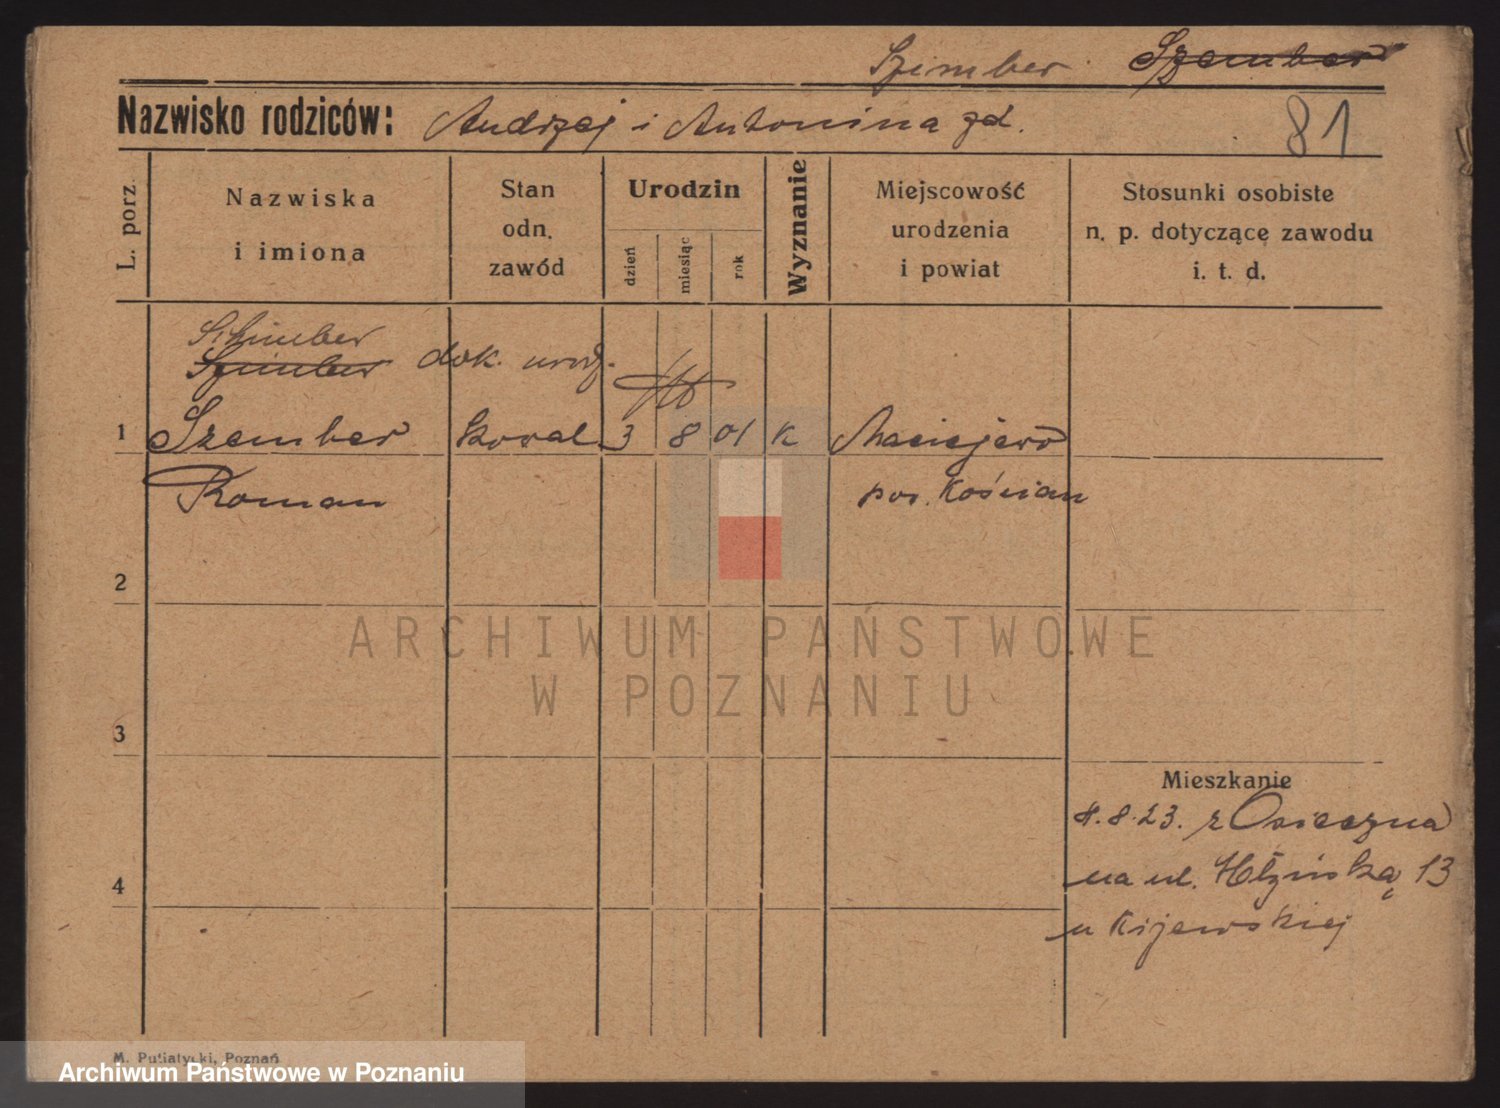 Szimber Szember
Nazwisko rodziców: Andrzej i Antonina zd.
81
L. porz.
Nazwiska
i imiona
Stan
odn.
zawód
Urodzin
dzień
miesiąc
rok
Wyznanie
Miejscowość
urodzenia
i powiat
Stosunki osobiste
n. p. dotyczące zawodu
i. t. d.
Szimber dok. urodz.
1 Szember kowal 3 8 01 K Maciejewo
Roman pow. Kościan
2
ARCHIWUM PAŃSTWOWE
W POZNANIU
3
Mieszkanie
8.8.23. z Osieczna
4
na ul. 13
u Kijewskiej
M. Putiatycki, Poznań
Archiwum Państwowe w Poznaniu